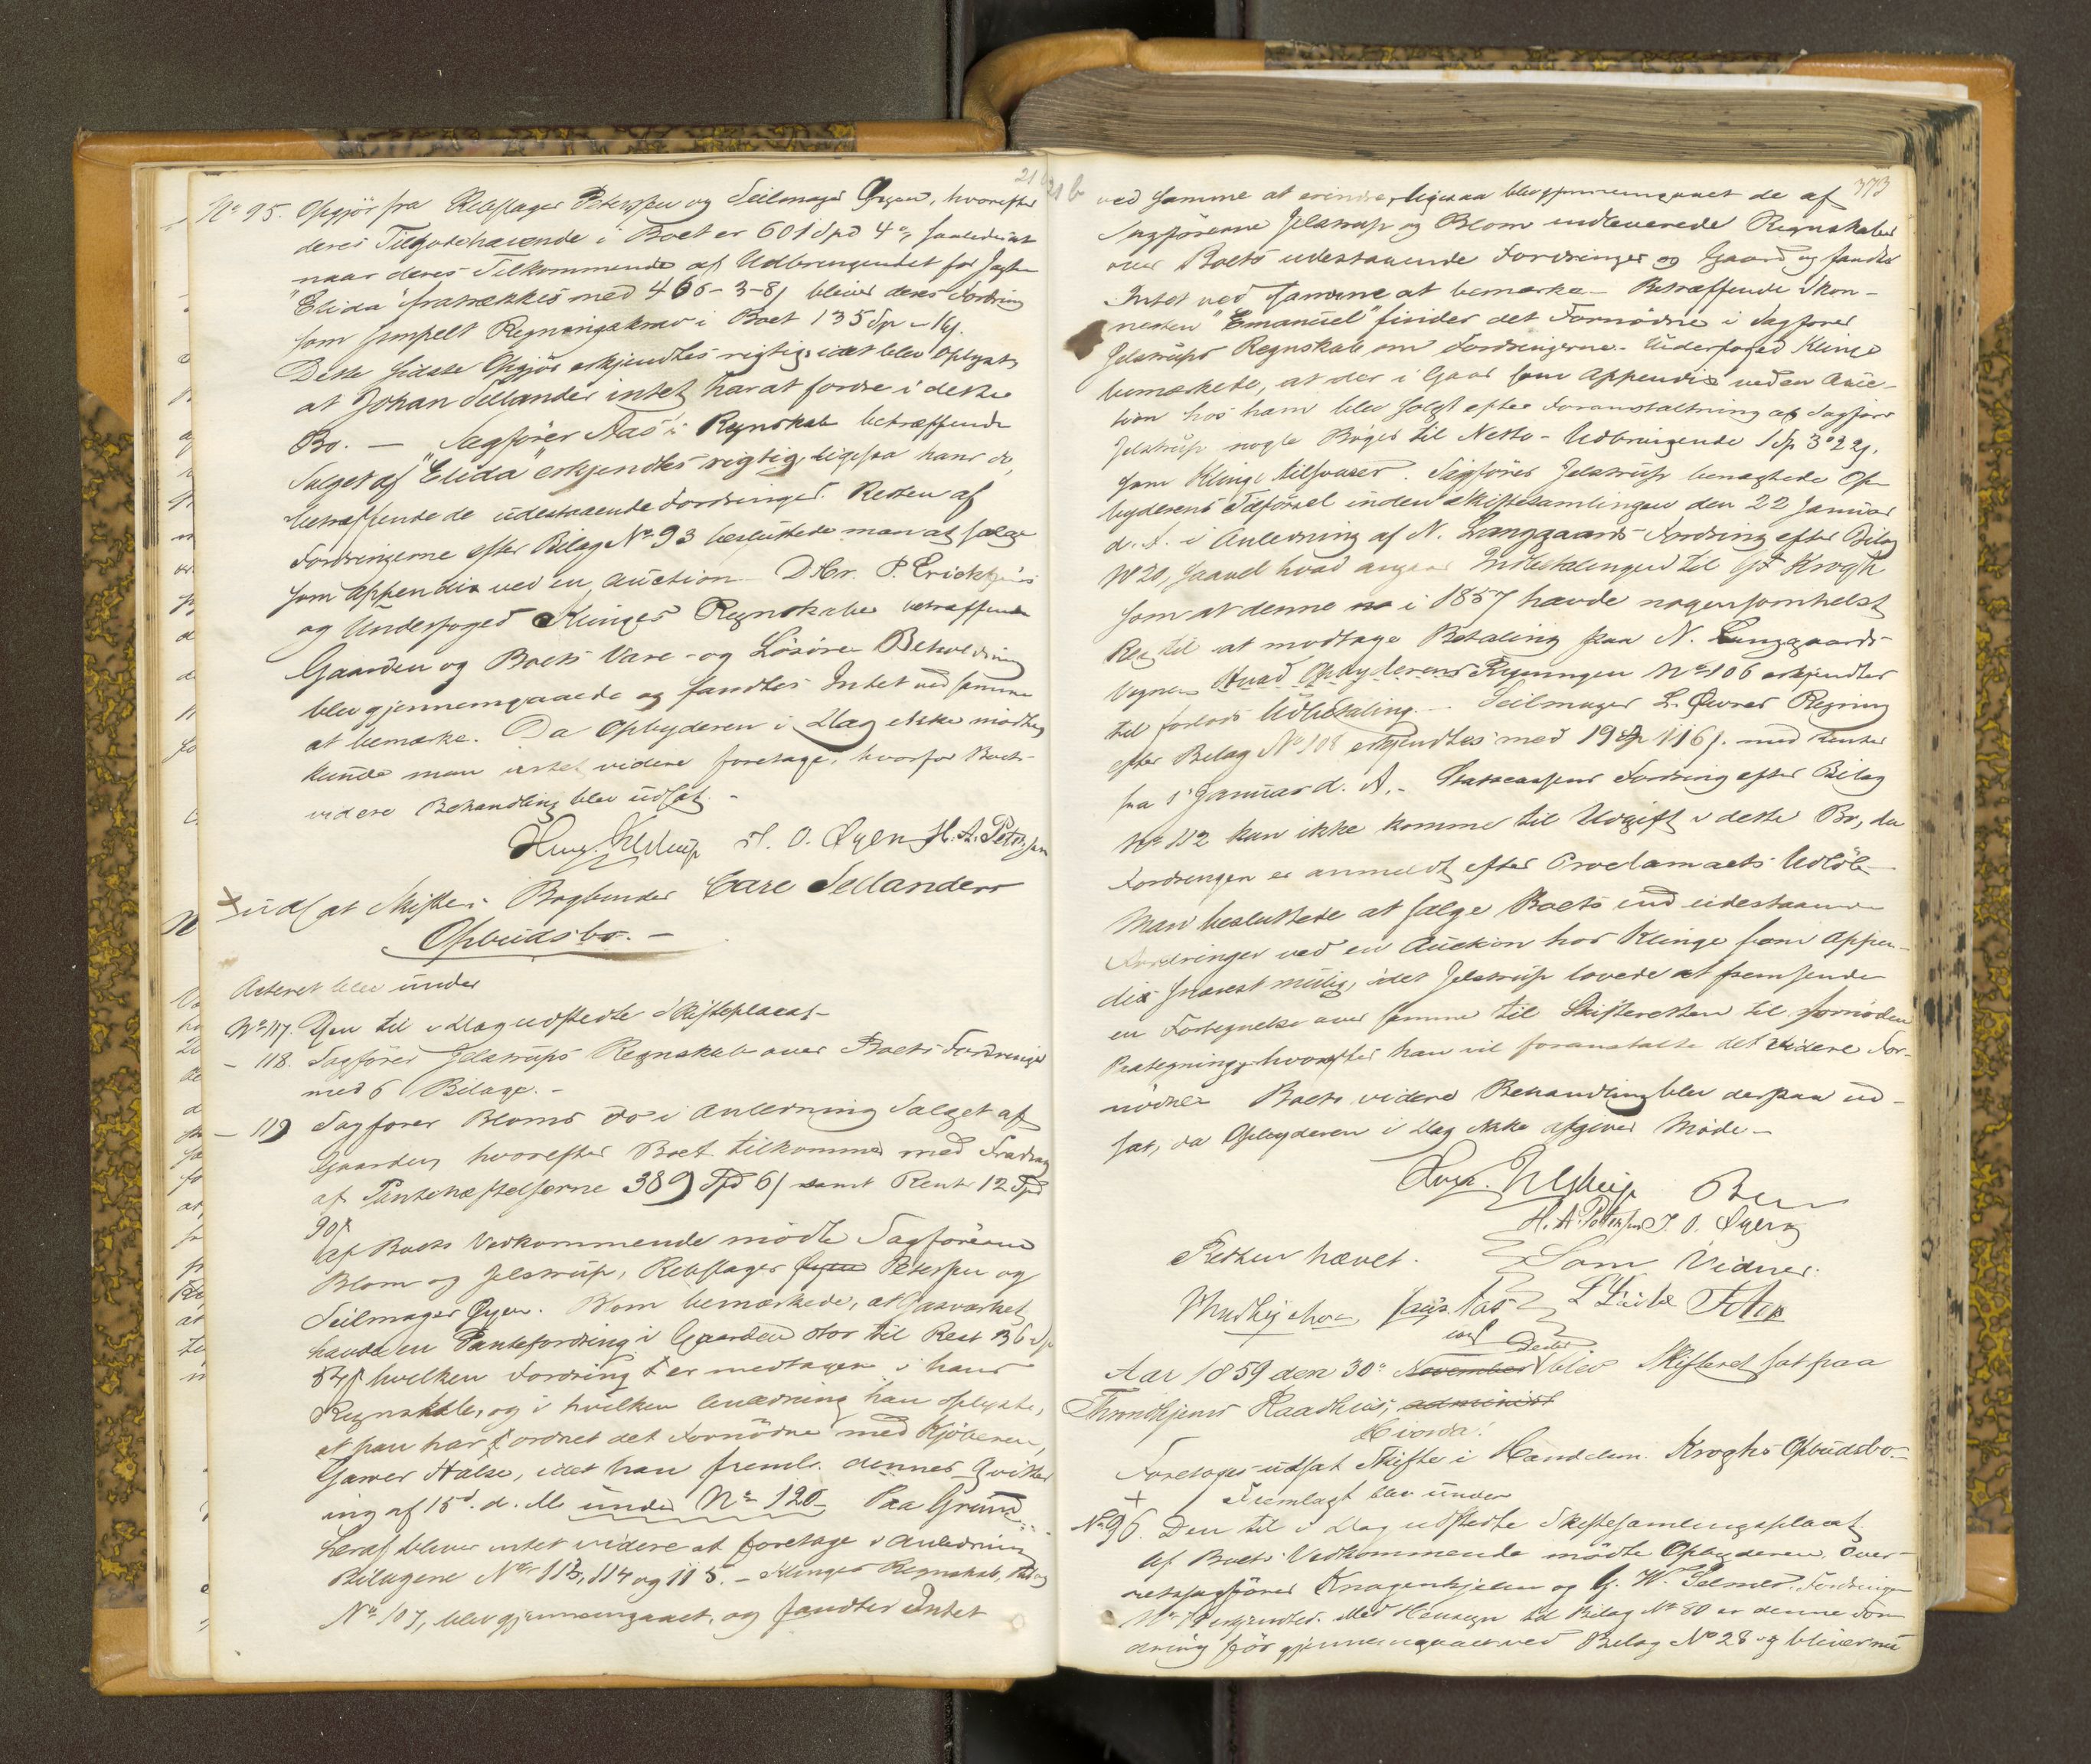 21b
No 95. Opgjör fra Rebslager Peterssen og Seilmager Øyen, hvorefter
deres Tilgodehavende i Boet er 601 Spd 4 saaledes at
naar deres Tilkommende af Udbringendet for Jagten
"Elida" fratrækkes med 466-3-8, bliver deres Fordring
som simpelt Regningskrav i Boet 135 Sp - 16
Dette sidste Opgjör erkjendtes rigtig, idet blev oplyst,
at Johan Sellander intet har at fordre i dette
Bo. — Sagförer Aas's Regnskab betræffende
Salget af "Elida" erkjendtes rigtig, ligesaa hans do,
betræffende de udestaaende Fordringer. Resten af
Fordringerne efter Bilag No 93 besluttede man at sælge
som Appendix ved en Auction. D Hr. P. Erichsens
og Underfoged Klinges Regnskaber betræffende
Gaarden og Boets Vare- og Lösöre Beholdning
blev gjennemgaaede og fandtes Intet ved samme
at bemærke. Da Opbyderen i Dag ikke mödte,
kunde man intet videre foretage, hvorfor Boets
videre Behandling blev udsat. -
J. O. Øyen H. A. Peterssen
+ udsat Skifte i Bogbinder Carl Sellanders
Opbudsbo. -
Acteret blev under
No 117. Den til i Dag udstedte Skifteplacat -
- 118. Sagförer Jelstrups Regnskab over Boets Fordringer
med 6 Bilage. -
- 119 Sagförer Bloms do i Anledning Salget af
Gaarden, hvorefter Boet tilkommer med Fradrag
af Pantehæftelserne 389 Spd 6 samt Rente 12 Spd
90
Af Boets Vedkommende mödte Sagförerne
Blom og Jelstrup, Rebslager Peterssen og
Seilmager Øyen. Blom bemærkede, at Gasværket
havde en Pantefordring i Gaarden stor til Rest 36 Sp
84 hvilken Fordring er medtagen i hans
Regnskab, og i hvilken Anledning han oplyste,
at han har ordnet det Fornödne med Kjöberen,
Garver Halse, idet han fremla. dennes Qvitter
ing af 15d. d. M. under No 120. Paa Grund
heraf bliver intet videre at foretage i Anledning
Bilagene No 113, 114 og 115. - Klinges Regnskab,
No 107, blev gjennemgaaet, og fandtes Intet
21 b
373
ved samme at erindre, ligesaa blev gjennemgaaet de af
Sagförerne Jelstrup og Blom indleverede Regnskaber
over Boets udestaaende Fordringer og Gaard og fandtes
Intet ved samme at bemærke - Betræffende Skon-
nerten "Emanuel" findes det Fornödne i Sagförer
Jelstrups Regnskab om Fordringerne. Underfoged Klinge
bemærkede, at der i Gaar som Appendix ved en Auc-
tion hos ham blev solgt efter Foranstaltning af Sagförer
Jelstrup nogle Böger til Netto-Udbringende 1 Sp 3 22
som Klinge tilsvarer. Sagförer Jelstrup benægtede Op-
byderens Tilförsel inden Skiftesamlingen den 22 Januar
d. A. i Anledning af N. Langgaards Fordring efter Bilag
No 20, saavel hvad angaar Indbetalingen til Krogh
som at denne i 1857 havde nogensomhelst
Ret til at modtage Betaling paa N. Langgaards
Vegne. Hvad Opbyderens Regningen No 106 erkjendtes
til forlods Udbetaling. - Seilmager L. Øvres Regning
efter Bilag No 108 erkjendtes med 19 Sp 116 med Renter
fra 1 Januar d. A. - Statscassens Fordring efter Bilag
No 112 kan ikke komme til Udgift i dette Bo, da
Fordringen er anmeldt efter Proclamaets Udlöb
Man besluttede at sælge Boets udestaaende
Fordringer ved en Auction hos Klinge som Appen-
dix snarest mulig, idet Jelstrup lovede at fremsende
en Fortegnelse over samme til Skifteretten til fornöden
Paategning, hvorefter han vil foranstalte det videre For-
nödne. Boets videre Behandling blev derpaa ud-
sat, da Opbyderen i Dag ikke afgiver Möde -
H. A. Peterssen J. O. Øyen
Retten hævet. Som Vidner.
Aar 1859 den 30 November Decbr blev Skifteret sat paa
Throndhjems Raadhus, administ
Hvorda:
Foretoges udsat Skifte i Handelsm. Kroghs Opbudsbo. -
+ Fremlagt blev under
No 96. Den til i Dag udstedte Skiftesamlingsplacat
Af Boets Vedkommende mödte Opbyderen, Over-
retssagförer Knagenhjelm og G. W. Selmer. Fordringen
erkjendtes. Med Hensyn til Bilag No 80 er denne For
dring för gjennemgaaet ved Bilag No 28 og bliver nu